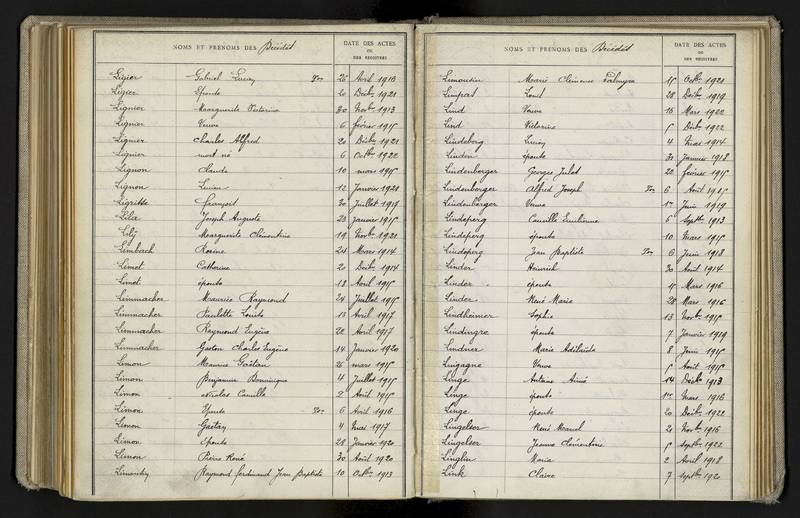 NOMS ET PRÉNOMS DES Décédés
DATE DES ACTES
OU
DES REGISTRES
Ligier Gabriel Lucien Ton 26 Avril 1913
Ligier Épouse 20 Décbre 1921
Lignier Marguerite Victorine 30 Novbre 1913
Lignier Veuve 6 février 1915
Lignier Charles Alfred 20 Décbre 1921
Lignier mort né 6 Octbre 1922
Lignon Claude 10 mars 1915
Lignon Lucien 12 Janvier 1921
Ligritte François 30 Juillet 1919
Lila Joseph Auguste 23 janvier 1915
Lilj Marguerite Clémentine 19 Novbre 1921
Limbach Rosine 24 Mars 1914
Limet Catherine 20 Décbre 1914
Limet épouse 13 Avril 1915
Limmacher Maurice Raymond 24 Juillet 1915
Limmacher Paulette Louise 15 Avril 1917
Limmacher Raymond Eugène 22 Avril 1917
Limmacher Gaston Charles Eugène 14 Janvier 1920
Limon Maurice Gaëtan 26 mars 1915
Limon Benjamin Dominique 4 Juillet 1915
Limon Nicolas Camille 2 Août 1915
Limon Épouse Ton 6 Avril 1916
Limon Gaëtan 4 Mai 1917
Limon Épouse 28 Janvier 1920
Limon Pierre René 30 Août 1920
Raymond Ferdinand Jean Baptiste 10 Octbre 1913
NOMS ET PRÉNOMS DES Décédés
DATE DES ACTES
OU
DES REGISTRES
Limousin Marie Clémence Palmyre 15 Octbre 1921
Louis 28 Décbre 1919
Lind Veuve 15 Mars 1922
Lind Victorine 5 Décbre 1922
Lindeberg Lucien 4 Mai 1914
Linden épouse 30 Janvier 1918
Lindenberger Georges Jules 20 février 1915
Lindenberger Alfred Joseph Ton 6 Août 1915
Lindenberger Veuve 17 Juin 1919
Lindeperg Camille Emilienne 6 Septbre 1913
Lindeperg épouse 10 Mars 1915
Lindeperg Jean Baptiste Ton 6 Juin 1918
Linder Heinrich 20 Août 1914
Linder épouse 4 Mars 1916
Linder René Marie 28 Mars 1916
Lindheimer Sophie 13 Novbre 1915
Lindingre épouse 7 Janvier 1919
Lindner Marie Adélaïde 8 Juin 1915
Lingagne Veuve 5 Août 1915
Linge Antoine Aimé 14 Décbre 1913
Linge épouse 1er Mars 1916
Linge épouse 20 Décbre 1921
Lingelser René Marcel 20 Novbre 1916
Lingelser Jeanne Clémentine 5 Septbre 1922
Linglin Marie 2 Avril 1918
Link Claire 7 Septbre 1920